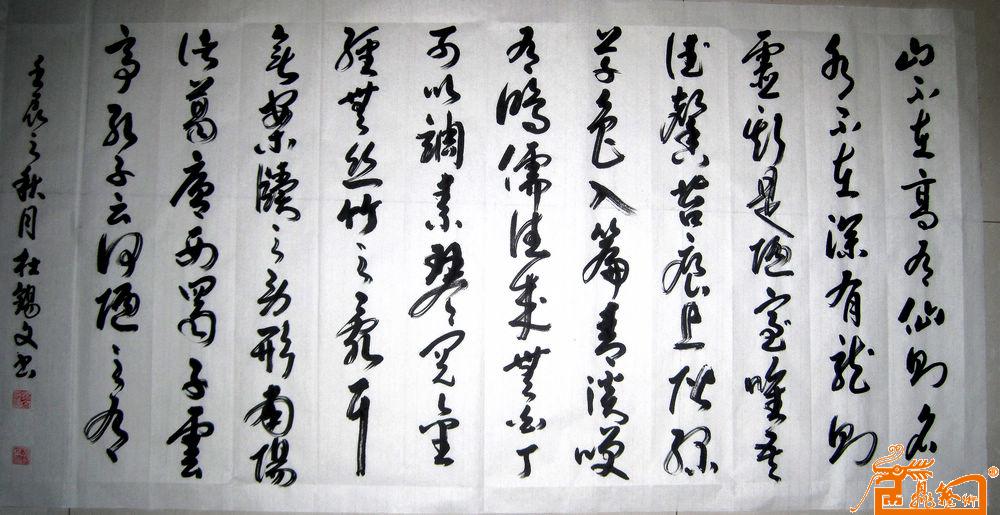 山不在高有仙則名
水不在深有龍則
靈斯是陋室唯吾
德馨苔痕上階綠
草色入簾青談笑
有鴻儒往來無白丁
可以調素琴閱金
經無絲竹之亂耳
無案牘之勞形南陽
諸葛廬西蜀子雲
亭孔子云何陋之有
壬辰之秋月杜錫文書